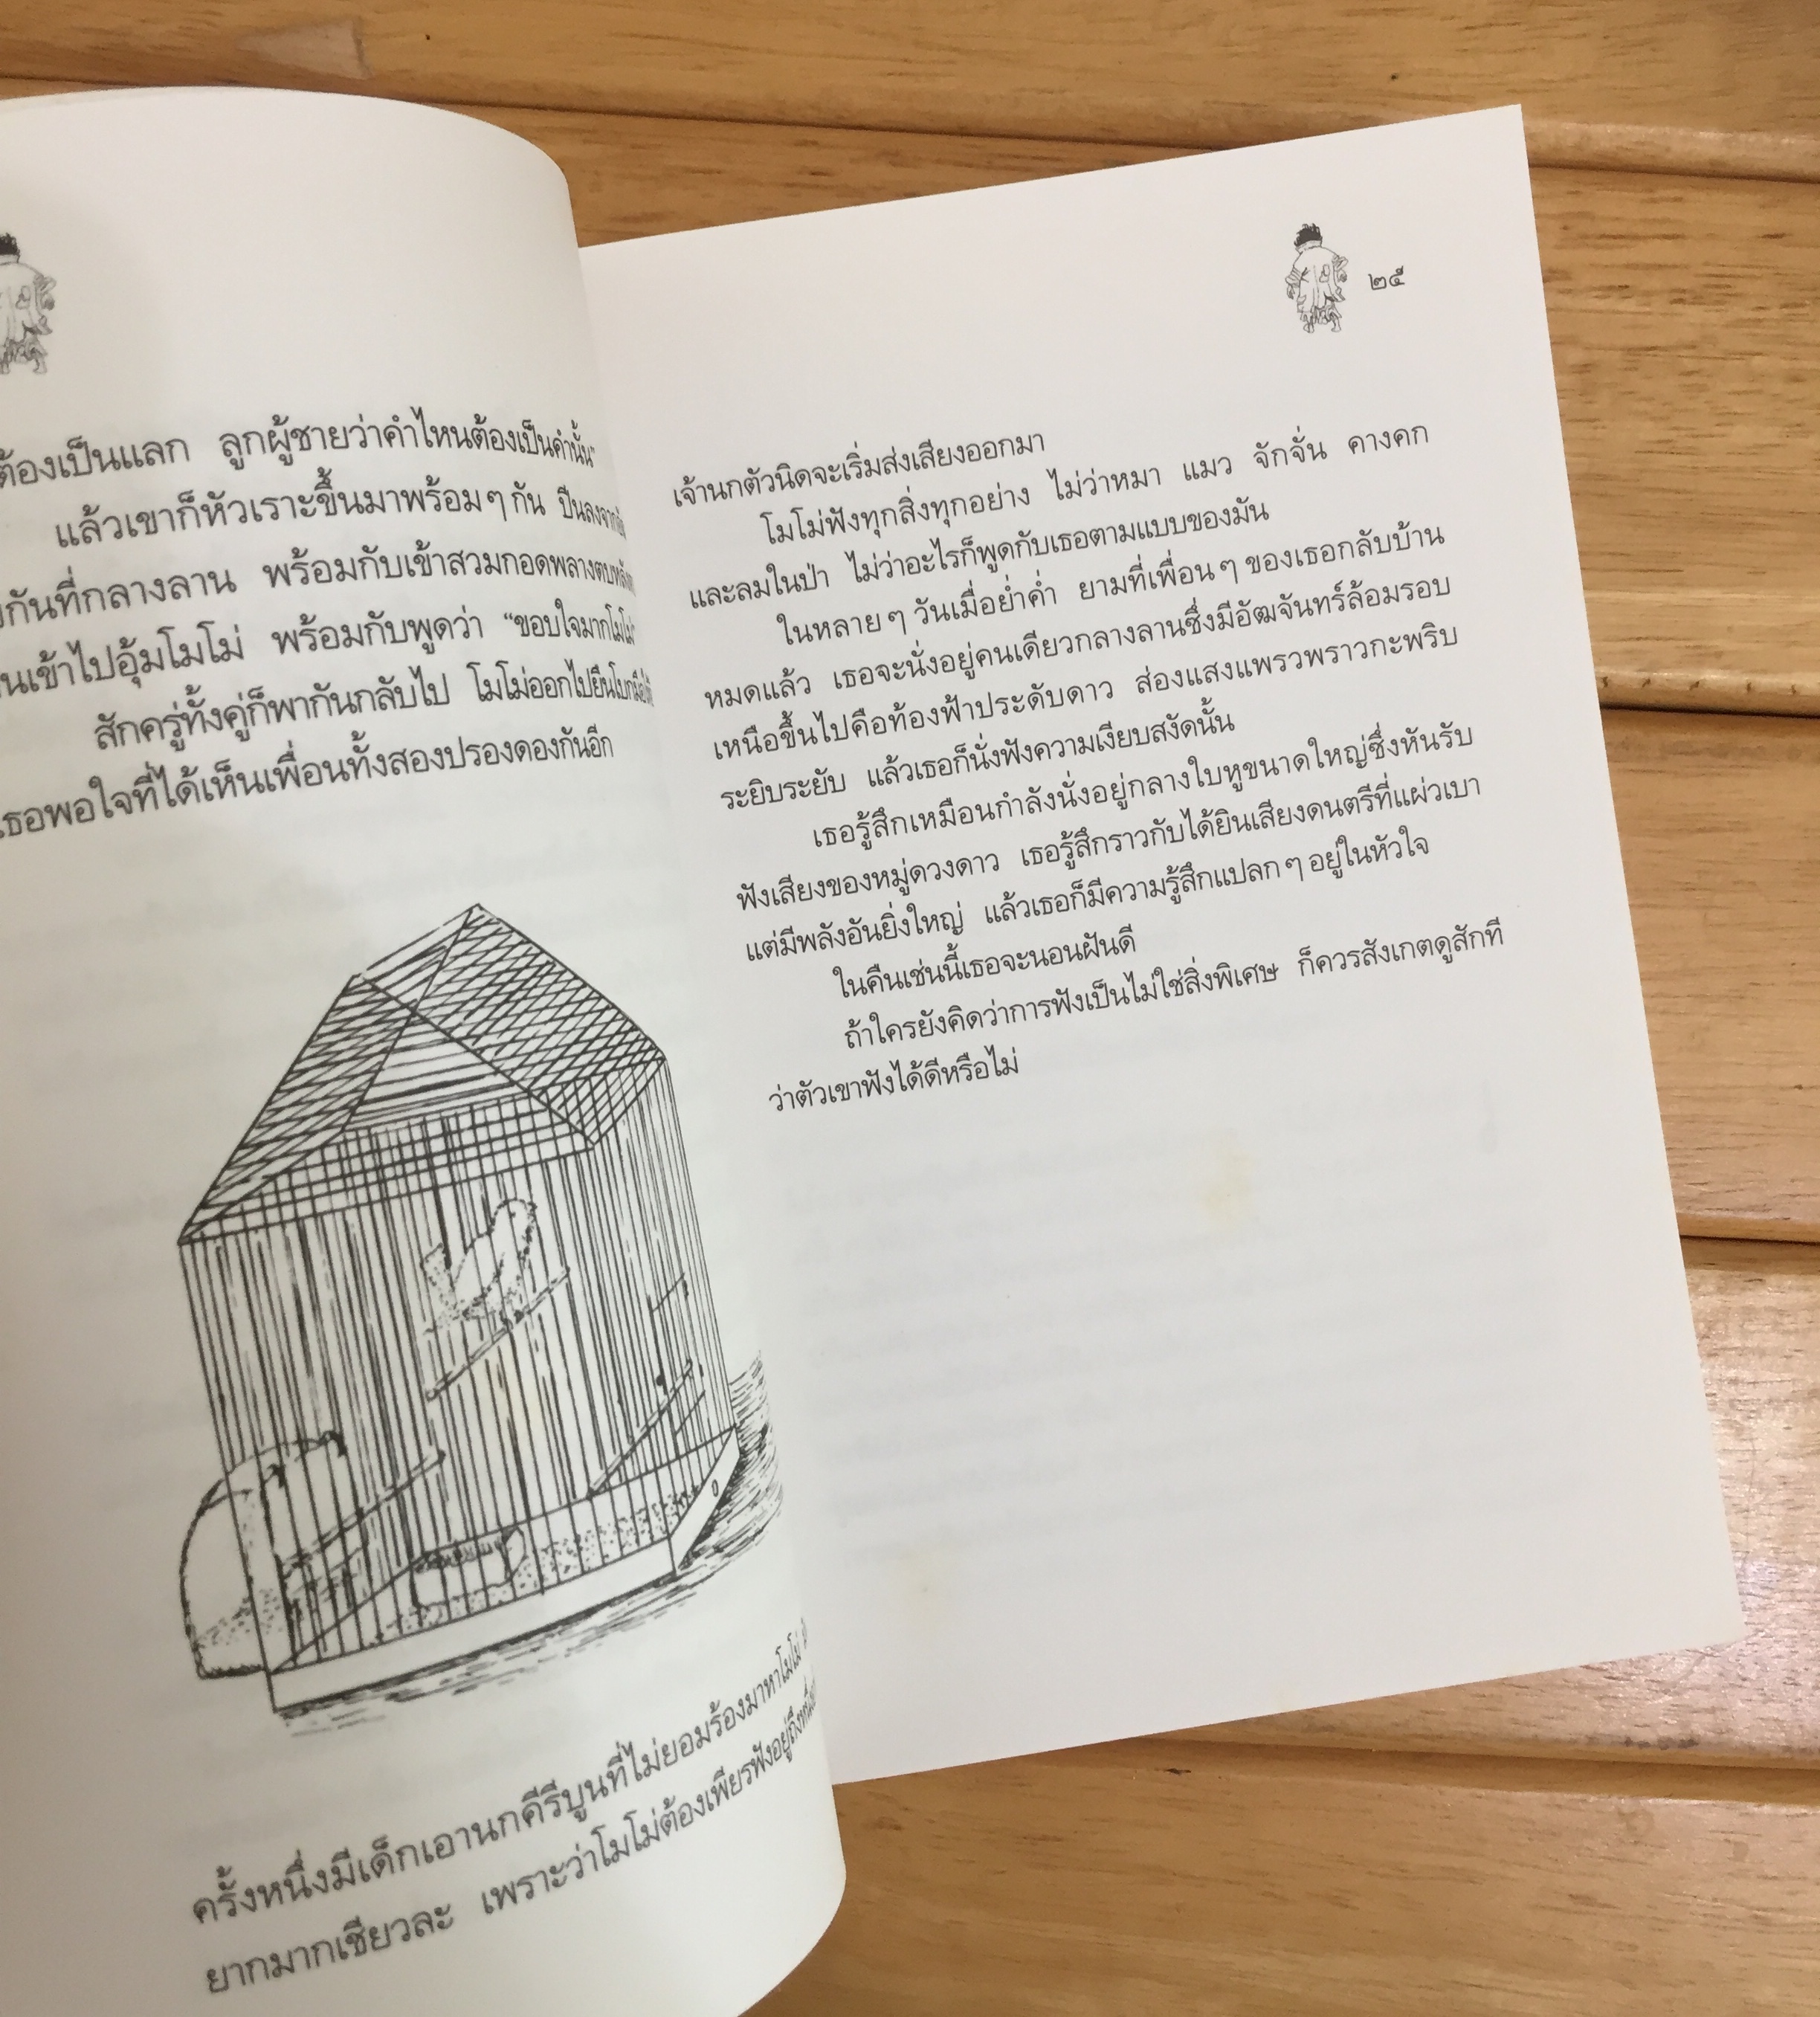 ต้องเป็นแลก ลูกผู้ชายว่าคำไหนต้องเป็นคำนั้น"
แล้วเขาก็หัวเราะขึ้นมาพร้อมๆกัน ปีนลงจาก
กันที่กลางลาน พร้อมกับเข้าสวมกอดพลางตบหลัง
เข้าไปอุ้มโมโม่ พร้อมกับพูดว่า "ขอบใจมากโมโม่"
สักครู่ทั้งคู่ก็พากันกลับไป โมโม่ออกไปยืนโบกมือ
เธอพอใจที่ได้เห็นเพื่อนทั้งสองปรองดองกันอีก
ครั้งหนึ่งมีเด็กเอานกคีรีบูนที่ไม่ยอมร้องมาหาโมโม่
ยากมากเชียวละ เพราะว่าโมโม่ต้องเพียรฟังอยู่ถึง
๒๕
เจ้านกตัวนิดจะเริ่มส่งเสียงออกมา
โมโม่ฟังทุกสิ่งทุกอย่าง ไม่ว่าหมา แมว จักจั่น คางคก
และลมในป่า ไม่ว่าอะไรก็พูดกับเธอตามแบบของมัน
ในหลายๆวันเมื่อย่ำค่ำ ยามที่เพื่อนๆของเธอกลับบ้าน
หมดแล้ว เธอจะนั่งอยู่คนเดียวกลางลานซึ่งมีอัฒจันทร์ล้อมรอบ
เหนือขึ้นไปคือท้องฟ้าประดับดาว ส่องแสงแพรวพราวกะพริบ
ระยิบระยับ แล้วเธอก็นั่งฟังความเงียบสงัดนั้น
เธอรู้สึกเหมือนกำลังนั่งอยู่กลางใบหูขนาดใหญ่ซึ่งหันรับ
ฟังเสียงของหมู่ดวงดาว เธอรู้สึกราวกับได้ยินเสียงดนตรีที่แผ่วเบา
แต่มีพลังอันยิ่งใหญ่ แล้วเธอก็มีความรู้สึกแปลกๆอยู่ในหัวใจ
ในคืนเช่นนี้เธอจะนอนฝันดี
ถ้าใครยังคิดว่าการฟังเป็นไม่ใช่สิ่งพิเศษ ก็ควรสังเกตดูสักที
ว่าตัวเขาฟังได้ดีหรือไม่